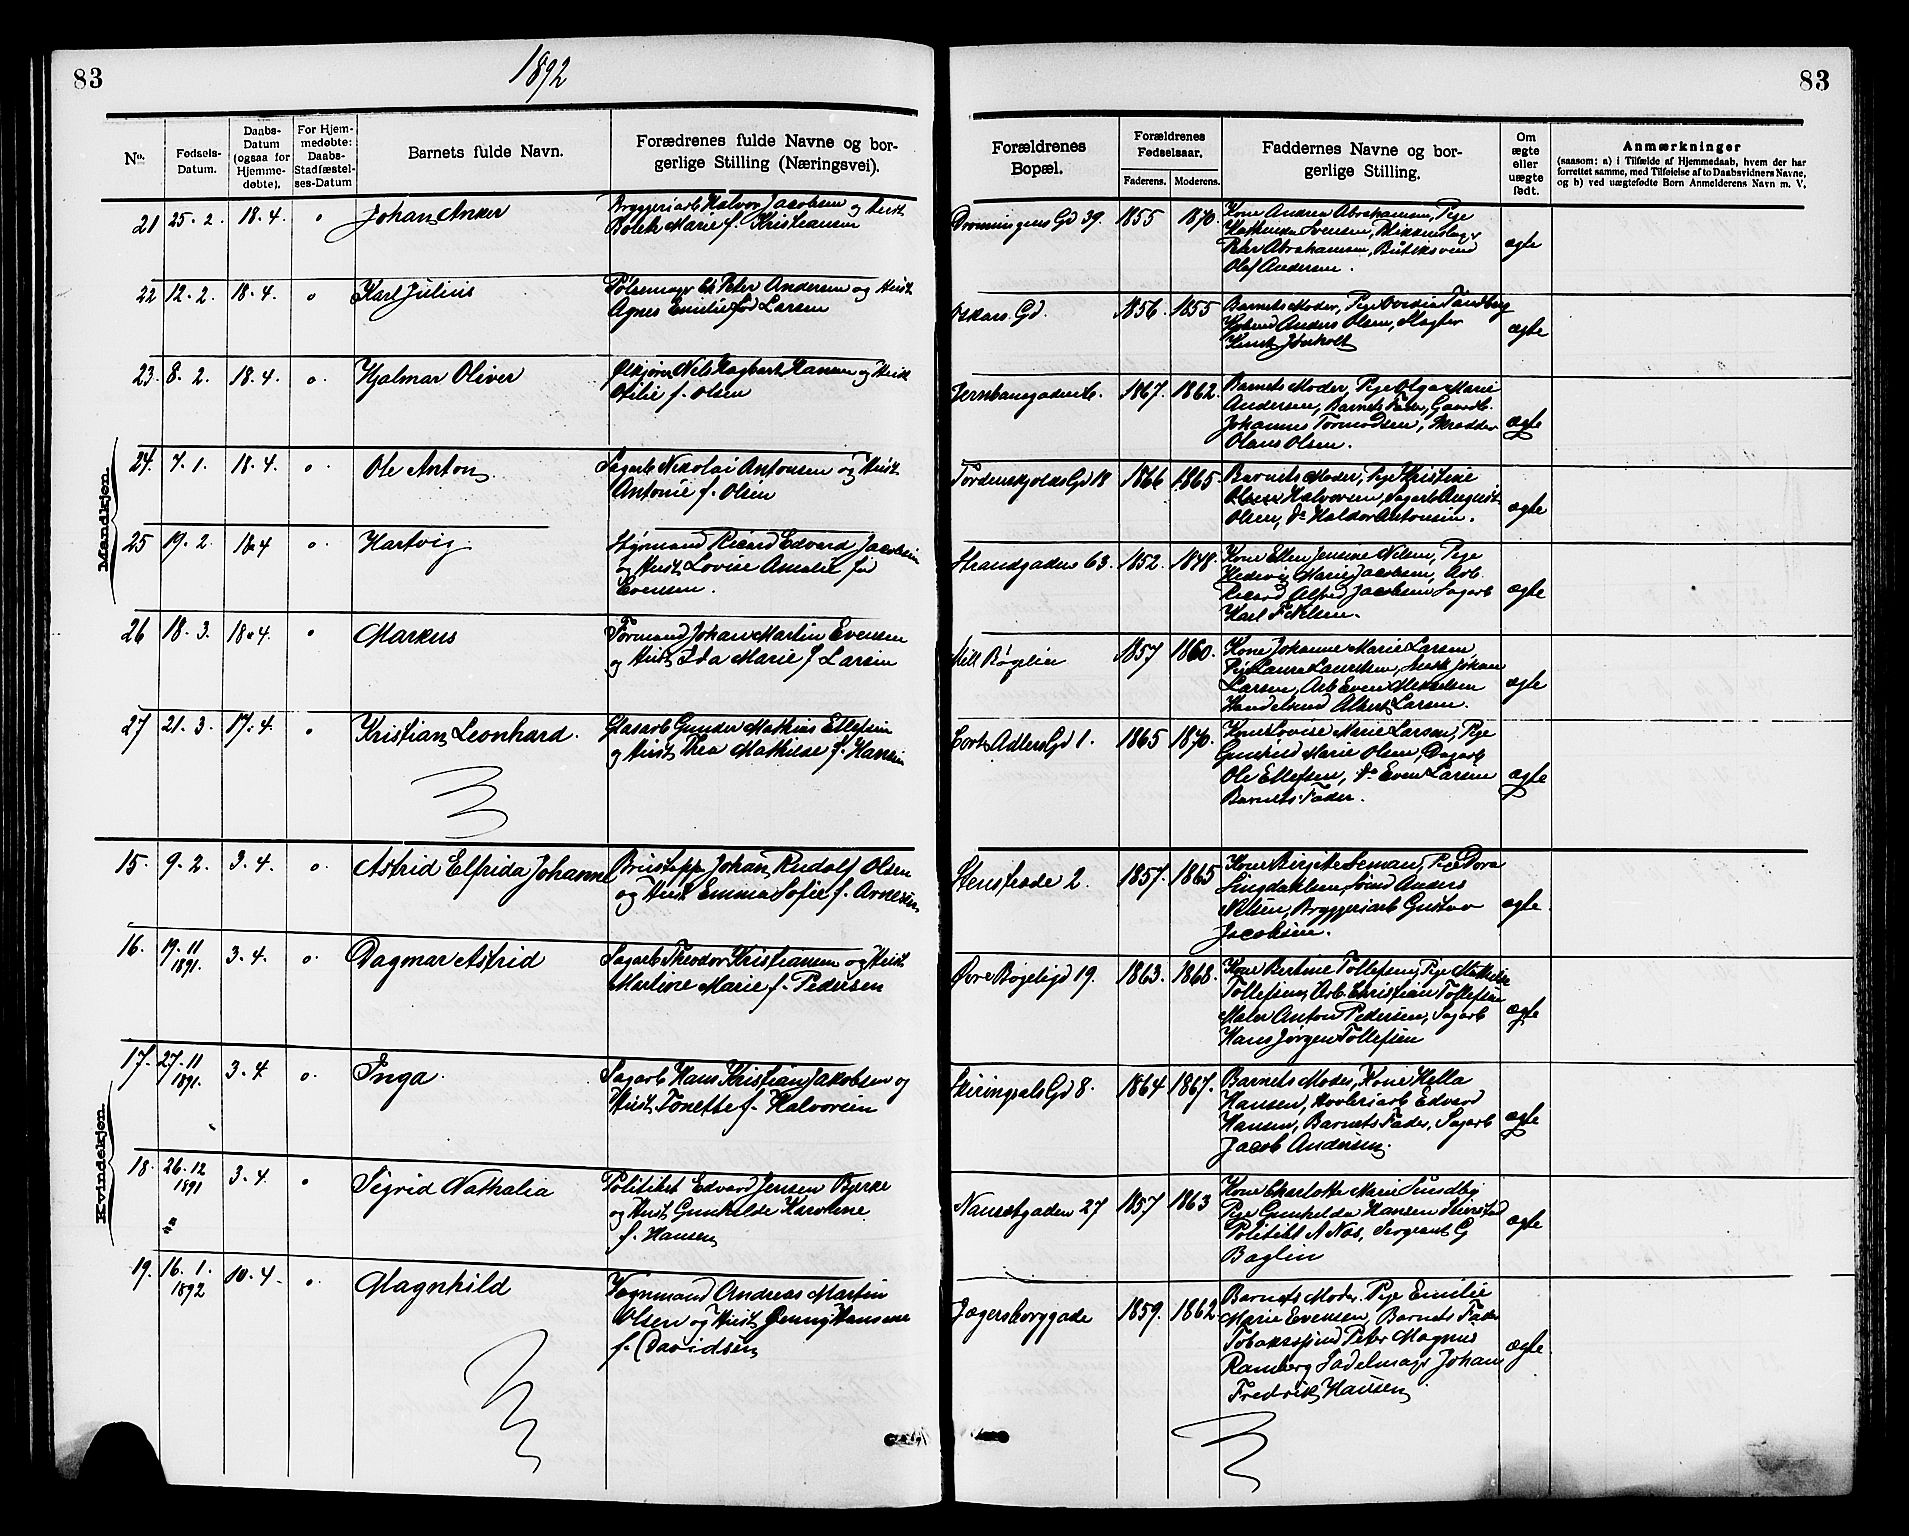 83
1892
83
No.
Fødsels-
Datum.
Daabs-
Datum
(ogsaa for
Hjemme-
døbte).
For Hjem-
medøbte:
Daabs-
Stadfæstel-
ses-Datum
Barnets fulde Navn.
Forædrenes fulde Navne og bor-
gerlige Stilling (Næringsvei).
Forældrenes
Bopæl.
Forældrenes
Fødselsaar.
Faderens.
Moderens.
Faddernes Navne og bor-
gerlige Stilling.
Om
ægte
eller
uægte
født.
Anmærkninger
(saasom: a) i Tilfælde af Hjemmedaab, hvem der har
forrettet samme, med Tilføielse af to Daabsvidners Navne,
og b) ved uægtefødte Børn Anmelderens Navn m. V.
Mandkjøn.
21 25. 2. 18. 4. o Johan Anker
Bryggeriarb Halvor Jacobsen og Hust
Marie f. Kristiansen
Dronningens Gd 39. 1855 1870.
Kone Andrea Abrahamsen, Pige
Svensen, Blikkenslag
Peter Abrahamsen, Butiksvend
Olaf Andersen.
ægte
22 12. 2. 18. 4. o Karl Julius
Pølsemager Peter Andersen og Hust
Agnes Emilie fød Larsen
Oskars Gd. 1856. 1855
Barnets Moder, Pige Tandberg
Anders Olsen, Slagter
Knut
ægte
23. 8. 2. 18. 4. o. Hjalmar Oliver
Ølkjører Nils Hagbart Hansen og Hust
Otilie f. Olsen
Jernbanegaden 1867. 1862.
Barnets Moder, Pige Olga Marie
Andersen, Barnets Fader, Gaardb.
Johannes Tormodsen, Skrædder
Olaus Olsen.
ægte
24. 7. 1. 18. 4. o. Ole Anton
Sagarb Nikolai Antonsen og Hust
Antonie f. Olsen
Tordenskjolds Gd 18 1866 1865
Barnets Moder, Pige Kristine
Halvorsen, Sagarb August
Olsen, Do Haldor Antonsen.
ægte
25 19. 2. 18. 4 o. Hartvig
Styrmand Ricard Edvard Jacobsen
og Hust Lovise Amalie
Evensen.
Strandgaden 63. 1852. 1848.
Kone Ellen Jensine Nilsen, Pige
Hedevig Marie Jacobsen, Arb.
Ricard Alfred Jacobsen Sagarb
Karl F Nilsen.
ægte
26 18. 3. 18. 4. o Markus
Formand Johan Martin Evensen
og Hust Ida Marie f Larsen
Mell Bøgelien 1857 1860.
Kone Johanne Marie Larsen,
Pige Laura Lauritsen, Johan
Larsen, Arb Even Mikkelsen
Handelsmd Albert Larsen.
ægte
27 21. 3. 17. 4. o Kristian Leonhard.
Glasarb Gunder Mathias Ellefsen
og Hust Thea Mathilde f. Hansen
Cort Adlers Gd 1. 1865 1870.
Kone Lovise Marie Larsen, Pige
Gunhild Marie Olsen, Dagarb
Ole Ellefsen, Do Even Larsen
Barnets Fader.
ægte
Kvindekjøn.
15. 9. 2. 3. 4. o. Astrid Elfrida Johanne
Brustapper Johan Rudolf Olsen
og Hust Emma Sofie f. Arnesen
Stenstrade 2. 1857. 1865
Kone Birgitte Seman, Pige Dora
Lingdahlsen, Anders
Nilsen, Bryggeriarb Gustav
Jacobsen.
ægte
16. 19. 11
1891. 3. 4. o. Dagmar Astrid
Sagarb Theodor Kristiansen og Hust
Martine Marie f. Pedersen
Øvre Bøgeligd 19. 1863. 1868.
Kone Bertine Tollefsen, Pige Mathilde
Tollefsen, Arb. Christian Tollefsen
Maler Anton Pedersen, Sagarb
Hans Jørgen Tollefsen
ægte
17. 27. 11
1891. 3. 4 o. Inga.
Sagarb Hans Kristian Jakobsen og
Hust Tonette f. Halvorsen
Skiringsals Gd 8. 1864 1867.
Barnets Moder, Kone Hella
Hansen, Høvleriarb Edvard
Hansen, Barnets Fader, Sagarb
Jacob Andersen.
ægte
18. 26. 12
1891 3. 4. o Sigrid Nathalia
Politibet Edvard Jensen Bjerke
og Hust Gunhilde Karoline
f. Hansen
Nansetgaden 27 1857 1863
Kone Charlotte Marie Sundby
Pige Gunhilda Hansen
Politibt A Nos, Sergeant G
Baglin
ægte
19. 16. 1.
1892 10. 4. o. Magnhild
Vognmand Andreas Martin
Olsen og Hust Jenny Hansine
f. Davidsen
Jægersborggade 1859. 1862
Barnets Moder. Pige Emilie
Marie Evensen, Barnets Fader
Tobaksspind Peter Magnus
Ramberg Sadelmagr Johan
Fredrik Hansen.
ægte